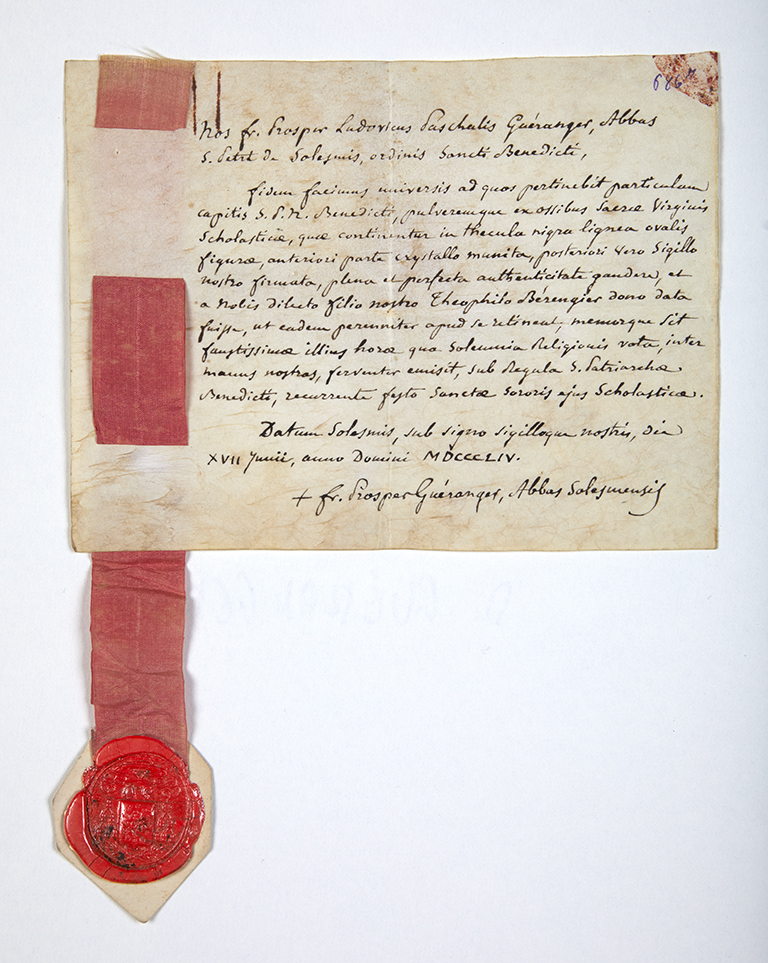 Nos fr. Prosper Ludovicus Paschalis Guéranger, Abbas
S. Petri de Solesmis, ordinis Sancti Benedicti,
fidem facimus universis ad quos pertinebit particulam
capitis S. P. N. Benedicti, pulveremque ex ossibus Sacræ Virginis
Scholasticæ, quæ continentur in thecula nigra lignea ovalis
figuræ, anteriori parte crystallo munita, posteriori vero Sigillo
nostro firmata, plena et perfecta authenticitate gaudere, et
a Nobis dilecto filio nostro Theophilo Bérengier dono data
fuisse, ut eadem perenniter apud se retineat, memorque sit
faustissimæ illius horæ qua Solemnia Religionis vota, inter
manus nostras, ferventer emisit, sub Regula S. Patriarchæ
Benedicti, recurrente festo Sanctæ Sororis ejus Scholasticæ.
Datum Solesmis, sub signo sigilloque nostris, die
XVII Junii, anno Domini MDCCCLIV.
+ fr. Prosper Guéranger, Abbas Solesmensis